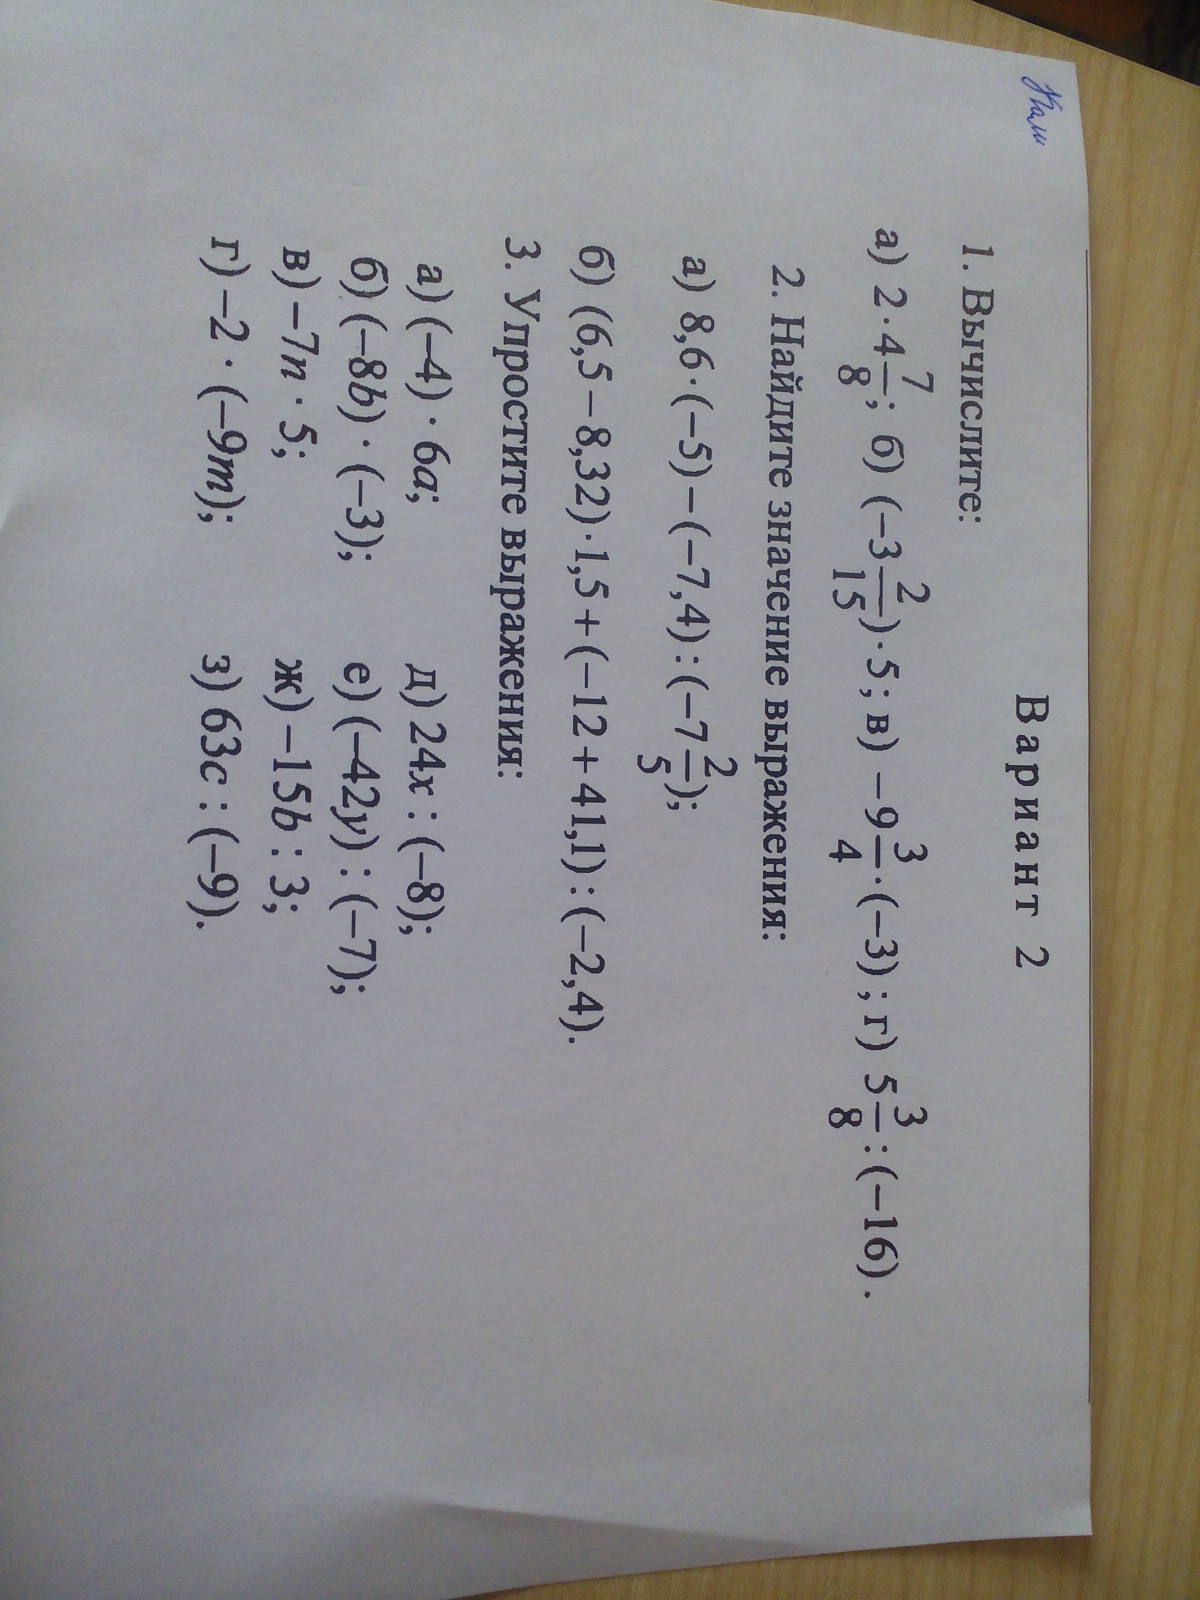 Вариант 2
1. Вычислите:
а) 2·4 7/8; б) (−3 2/15)·5; в) −9 3/4·(−3); г) 5 3/8:(−16).
2. Найдите значение выражения:
а) 8,6·(−5)−(−7,4):(−7 2/5);
б) (6,5−8,32)·1,5+(−12+41,1):(−2,4).
3. Упростите выражения:
а) (−4) · 6a; д) 24x : (−8);
б) (−8b) · (−3); е) (−42y) : (−7);
в) −7n · 5; ж) −15b : 3;
г) −2 · (−9m); з) 63c : (−9).